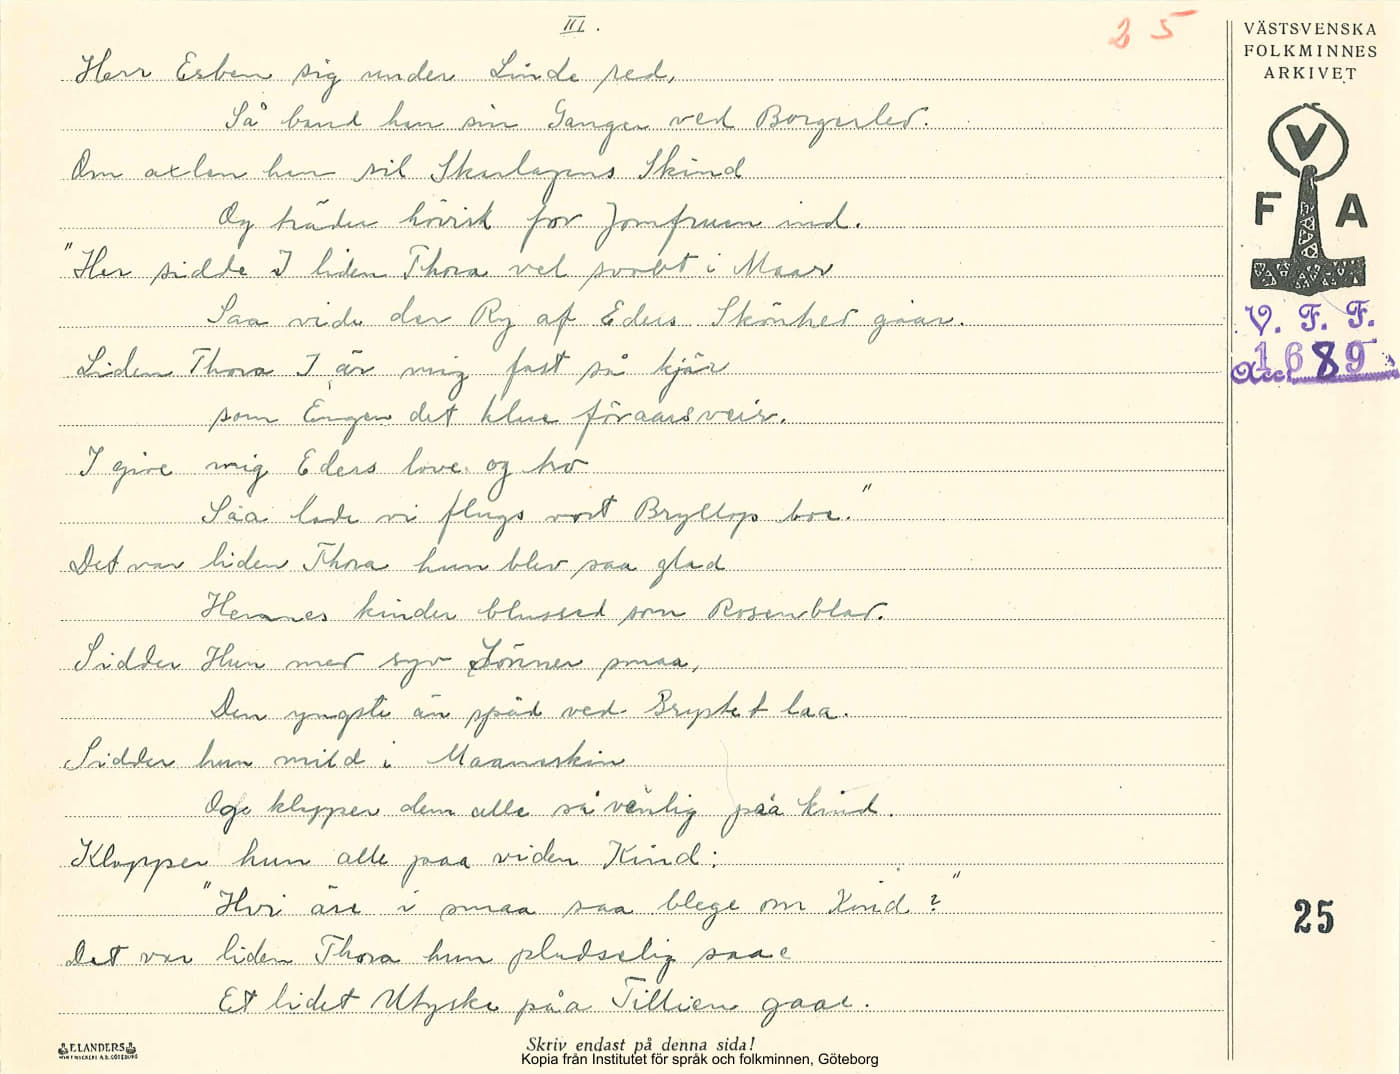 III.
25
VÄSTSVENSKA
FOLKMINNES
ARKIVET
V
F A
V. F. F.
Acc. 1689
Herr Esben sig under Linde red,
Så band han sin Ganger ved Borgerled.
Om axlen han sil Skarlagens Skind
Og träder hövisk for Jomfruen ind.
"Her sidde I liden Thora vel svöbt i Maar
Saa vide der Ry af Eders Skönhed gaar.
Liden Thora I är mig fast så kjär
som Engen det klue föraarsveir.
I give mig Eders love og tro
Saa lade vi flugs vort Bryllop boe."
Det var liden Thora hun blev saa glad
Hennes kinder blussed som Rosenblad.
Sidder Hun med syv Sönner smaa,
Den yngste än späd ved Brystet laa.
Sidder hun mild i Maaneskin
Og klapper dem alle så venlig påa kind.
Klapper hun alle paa viden Kind:
"Hvi äre i smaa saa blege om Kind?"
Det var liden Thora hun pludselig saae
Et lidet Utyske påa Tillien gaae.
25
F. LANDERS
Skriv endast på denna sida!
Kopia från Institutet för språk och folkminnen, Göteborg